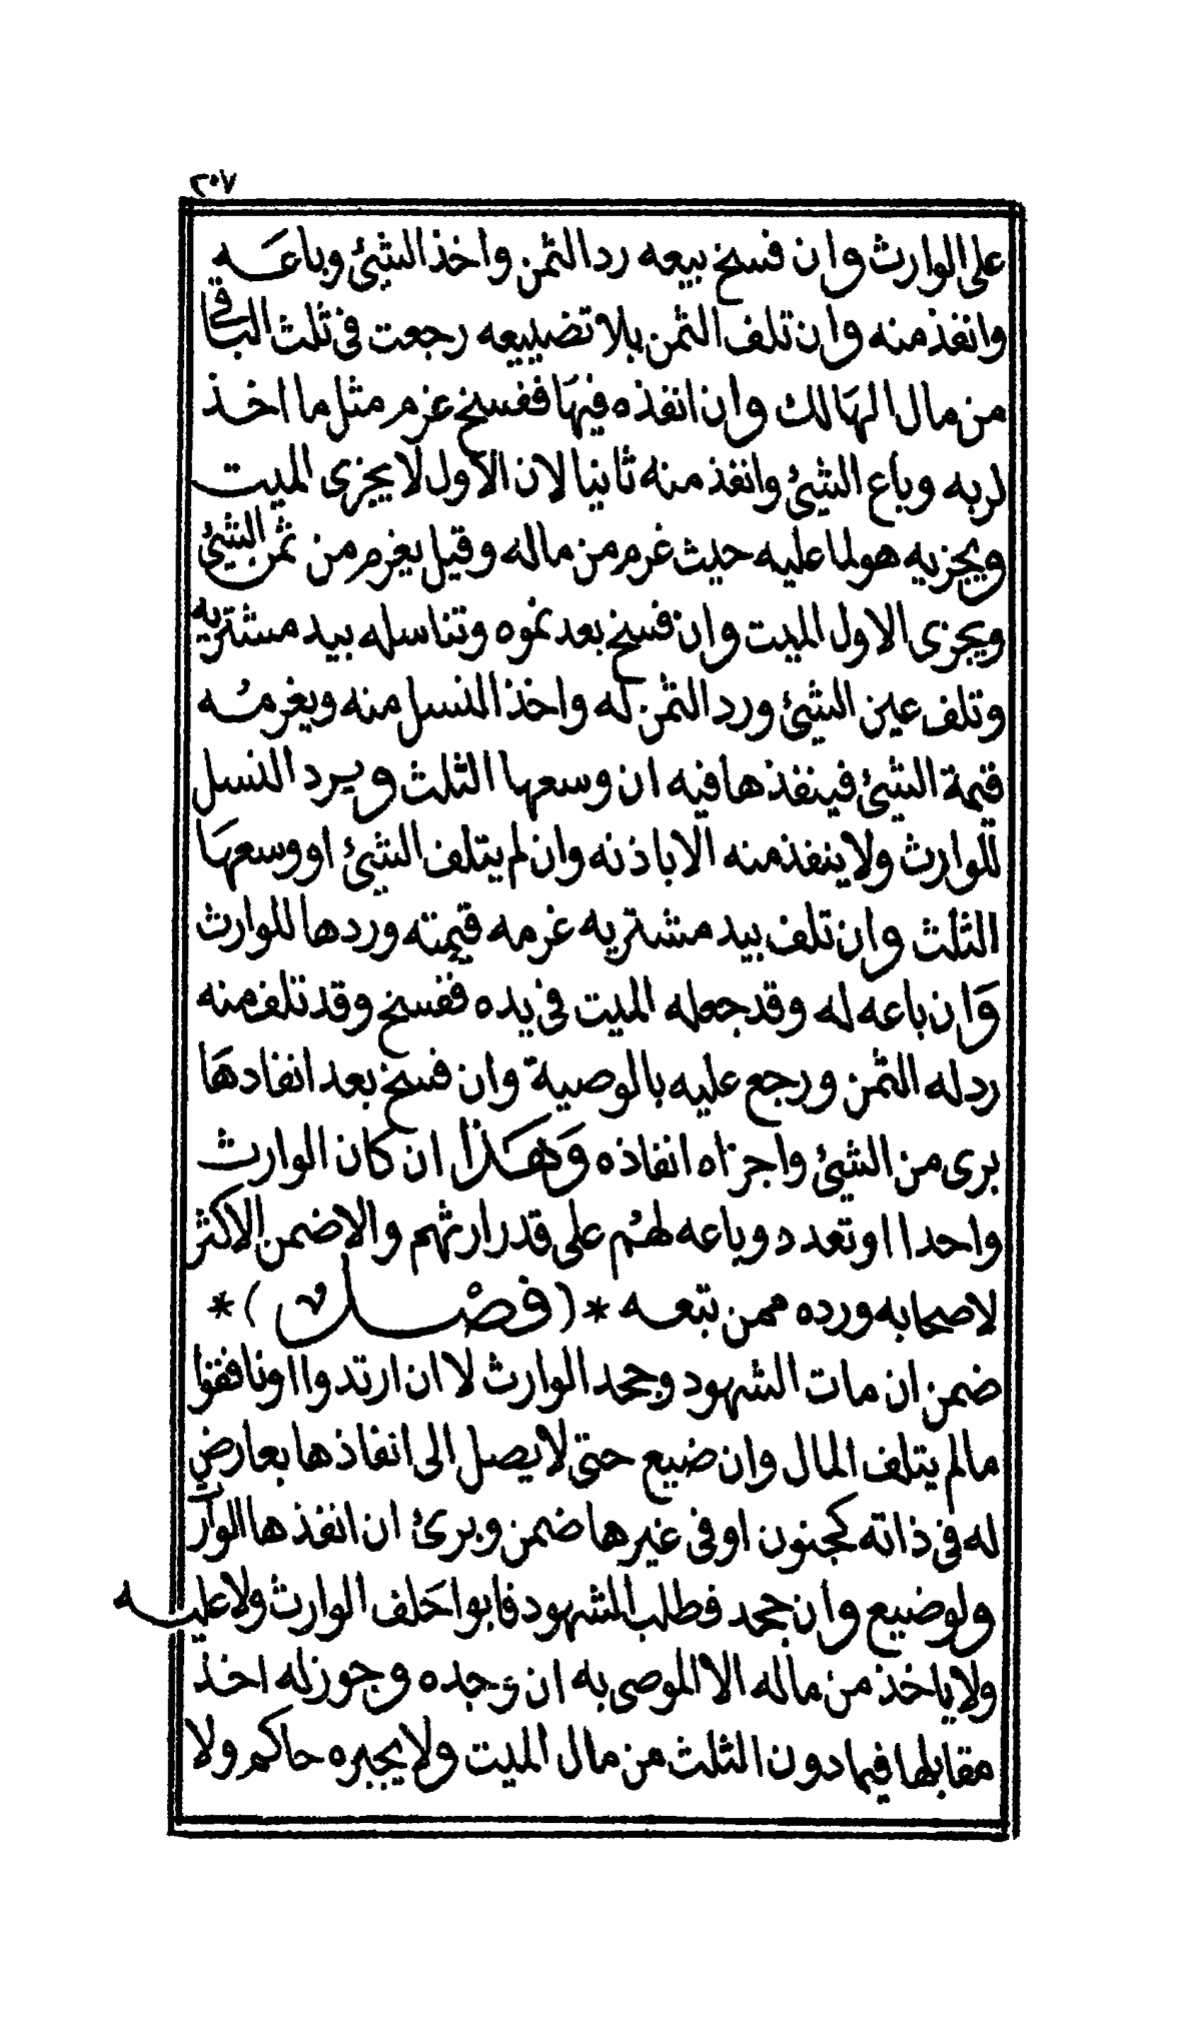 ٢٠٧
على الوارث وان فسخ بيعه رد الثمن واخذ الشئ وباعه
وانفذ منه وان تلف الثمن بلا تضييعه رجعت فى ثلث الباقى
من مال الهالك وان انفذه فيها ففسخ غرم مثل ما اخذ
لربه وباع الشئ وانفذ منه ثانيا لان الاول لا يجزى الميت
ويجزيه هو لما عليه حيث غرم من ماله وقيل يغرم من ثمن الشئ
ويجزى الاول الميت وان فسخ بعد نموه وتناسله بيد مشتريه
وتلف عين الشئ ورد الثمن له واخذ النسل منه ويغرمه
قيمة الشئ فينفذها فيه ان وسعها الثلث ويرد النسل
للوارث ولا ينفذ منه الا باذنه وان لم يتلف الشئ او وسعها
الثلث وان تلف بيد مشتريه غرمه قيمته وردها للوارث
وان باعه له وقد جعله الميت فى يده ففسخ وقد تلف منه
رد له الثمن ورجع عليه بالوصية وان فسخ بعد انفادها
برى من الشئ واجزاه انفاذه وهذا ان كان الوارث
واحدا او تعدد وباعه لهم على قدر ارثهم والا ضمن الاكثر
لاصحابه ورده ممن تبعه * ( فصل ) *
ضمن ان مات الشهود وجحد الوارث لا ان ارتدوا او نافقوا
مالم يتلف المال وان ضيع حتى لا يصل الى انفاذها بعارض
له فى ذاته كجنون او فى غيرها ضمن وبرئ ان انفذها الوارث
ولو ضيع وان جحد فطلب الشهود فابوا حلف الوارث ولا عليه
ولا ياخذ من ماله الا الموصى به ان وجده وجوز له اخذ
مقابلها فيما دون الثلث من مال الميت ولا يجبره حاكم ولا